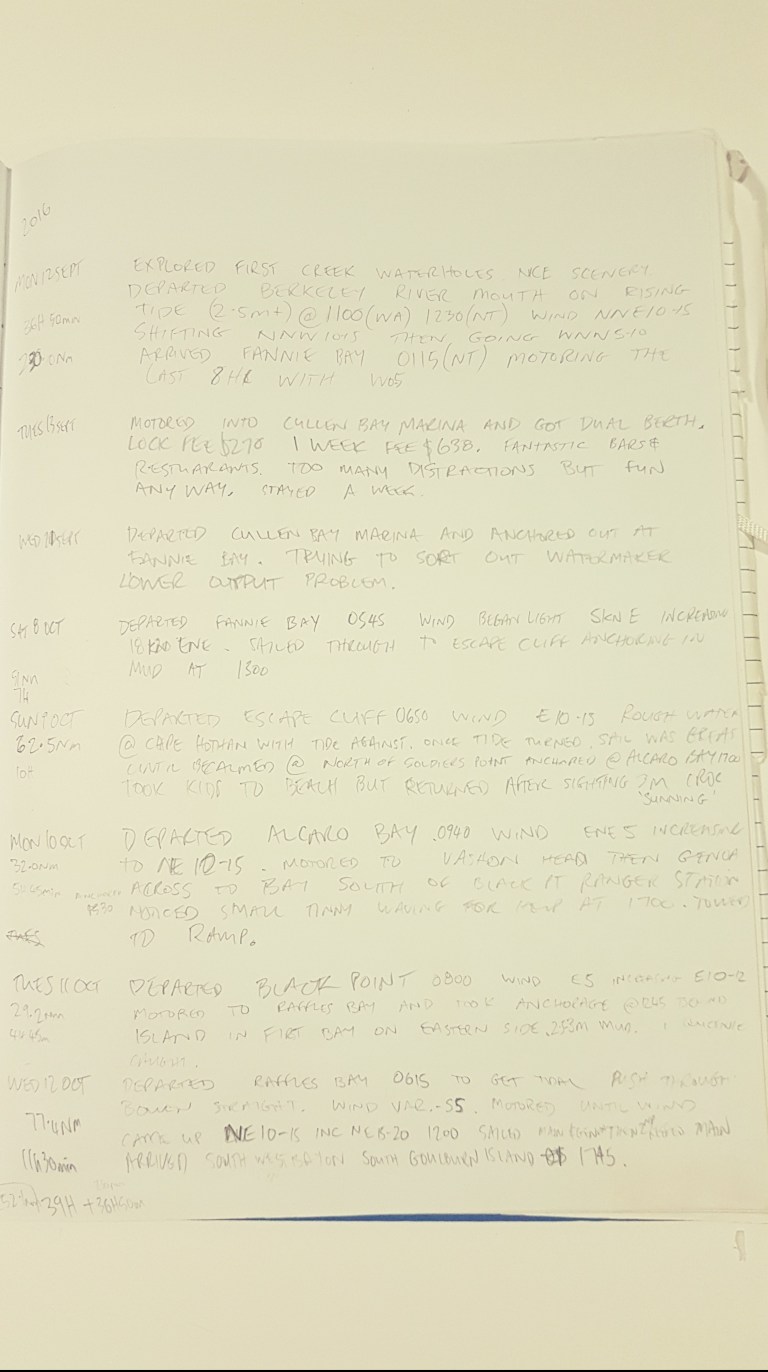 2016
MON 12 SEPT EXPLORED FIRST CREEK WATERHOLES NICE SCENERY.
DEPARTED BERKELEY RIVER MOUTH ON RISING
36H 50min TIDE (2.5m+) @ 1100 (WA) 1230 (NT) WIND NNE 10-15
SHIFTING NNW 10-15 THEN GOING WNN 5-10
230.0Nm ARRIVED FANNIE BAY 0115 (NT) MOTORING THE
LAST 8HR WITH W05
TUES 13 SEPT MOTORED INTO CULLEN BAY MARINA AND GOT DUAL BERTH.
LOCK FEE $270 1 WEEK FEE $638. FANTASTIC BARS &
RESTUARANTS. TOO MANY DISTRACTIONS BUT FUN
ANY WAY. STAYED A WEEK.
WED 21 SEPT DEPARTED CULLEN BAY MARINA AND ANCHORED OUT AT
FANNIE BAY. TRYING TO SORT OUT WATERMAKER
LOWER OUTPUT PROBLEM.
SAT 8 OCT DEPARTED FANNIE BAY 0545 WIND BEGAN LIGHT 5KN E INCREASING
18 KNO ENE. SAILED THROUGH TO ESCAPE CLIFF ANCHORING IN
MUD AT 1300
7H
SUN 9 OCT DEPARTED ESCAPE CLIFF 0650 WIND E 10-13 ROUGH WATER
62.5Nm @ CAPE HOTHAN WITH TIDE AGAINST. ONCE TIDE TURNED, SAIL WAS GREAT
10H UNTIL BECALMED @ NORTH OF SOLDIERS POINT ANCHORED @ ALCARO BAY 1700
TOOK KIDS TO BEACH BUT RETURNED AFTER SIGHTING 3M CROC
'SUNNING'
MON 10 OCT DEPARTED ALCARO BAY .0940 WIND ENE 5 INCREASING
32.0Nm TO NE 10-15. MOTORED TO VASHON HEAD THEN GENOA
ACROSS TO BAY SOUTH OF BLACK PT RANGER STATION
NOTICED SMALL TINNY WAVING FOR HELP AT 1700. TOWED
TO RAMP.
TUES 11 OCT DEPARTED BLACK POINT 0800 WIND E5 INCREASING E10-12
29.2Nm MOTORED TO RAFFLES BAY AND TOOK ANCHORAGE @ 1245 BEHIND
4H45m ISLAND IN FIRT BAY ON EASTERN SIDE. MUD. 1
CAUGHT.
WED 12 OCT DEPARTED RAFFLES BAY 0615 TO GET TIDAL PUSH THROUGH
BOWEN STRAIGHT. WIND VAR.-S5. MOTORED UNTIL WIND
77.4NM CAME UP NE 10-15 INC NE 8-20 1200 SAILED MAIN
11H 30min ARRIVED SOUTH WEST BAY ON SOUTH GOULBURN ISLAND @ 1745.
39H + 36H50m